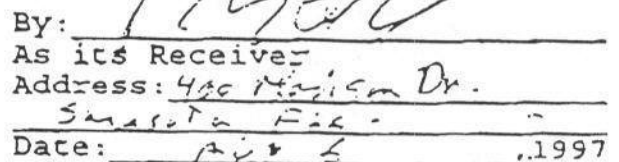 By:
As its Receiver
Address: 400 Madison Dr.
Sarasota Fla.
Date: , 1997